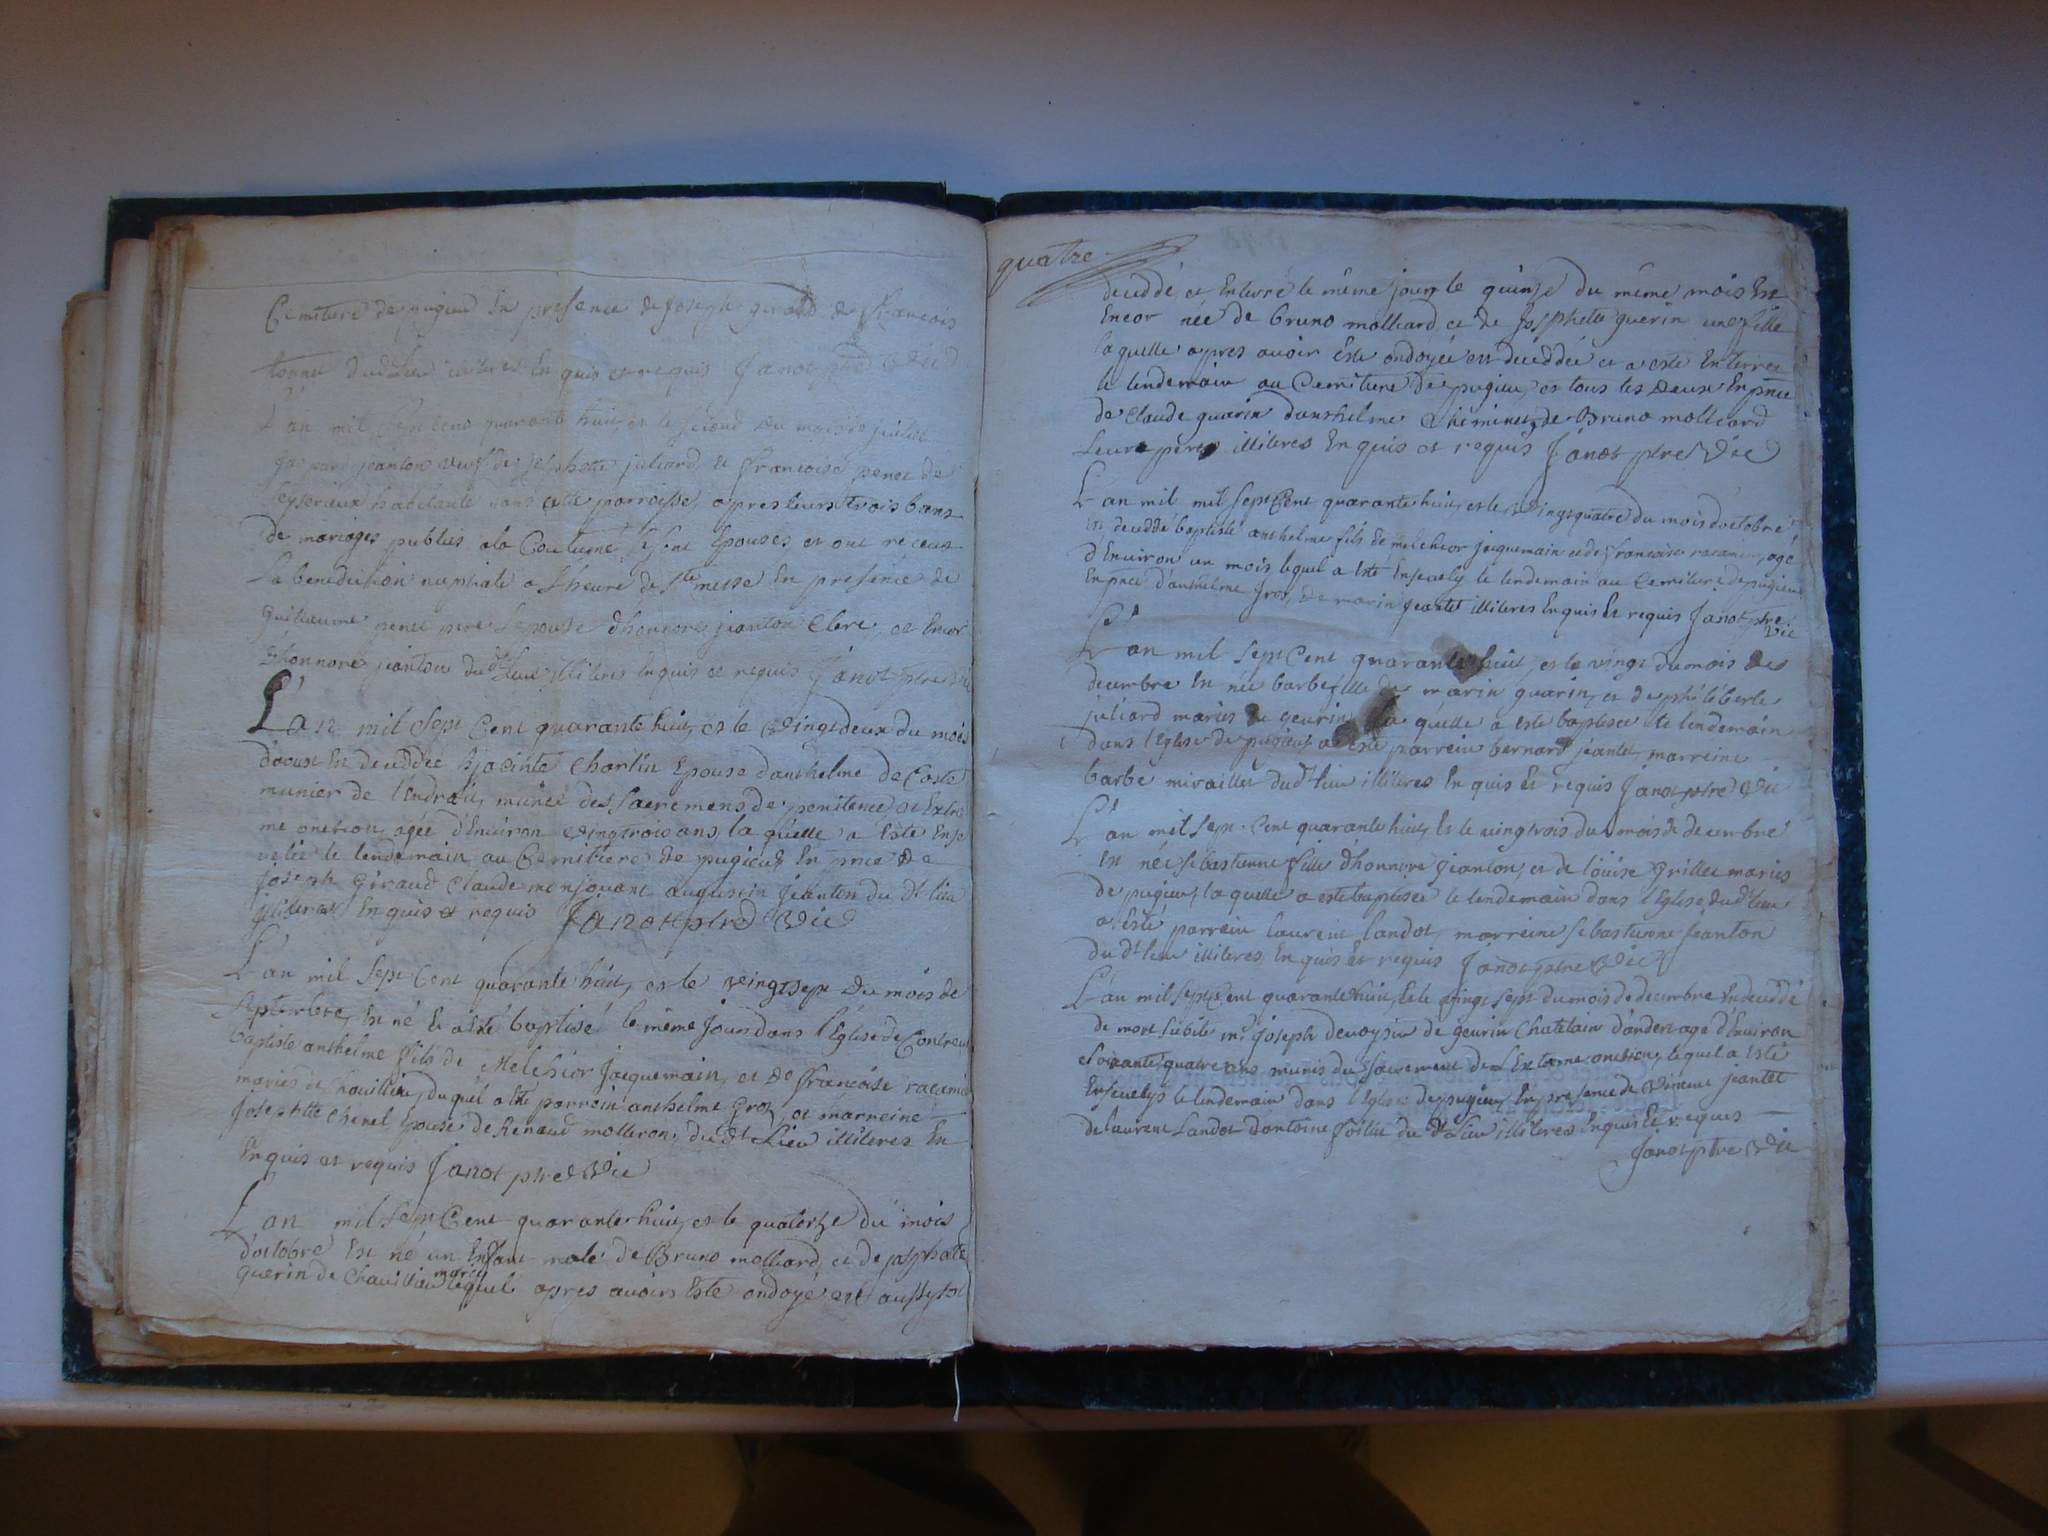 Cemitiere de pugieu En presence de Joseph giraud de francois
tonnet dud lieu illiteres En quis et requis Janot ptre Vic
L'an mil Sept Cent quarante huit, et le second du mois de juliet
gaspard jeanton veuf de josephete juliard et francoise penet de
Ceyserieux habitante dans cette parroisse, apres leurs trois bans
de mariages publies a la Coutume, se sont Epouses, et ont receus
La benediction nuptiale a L'heure de Ste messe En presence de
guillaume penet pere L'epouse d'honnoré jeanton Clerc, et Encor
d'honnoré jeanton dud Lieu illiteres Enquis et requis Janot ptre Vic
L'an mil Sept Cent quarante huit, et le Vingt deux du mois
d'aoust Est deceddée hjacinte Charlin Epouse d'anthelme de Coste
munier de l'endroit, munie des Sacremens de penitence et Extre
me onction, agée d'Environ Vingt trois ans, la quelle a Esté Ense
velie le lendemain au Cemitiere de pugieu En pnce de
joseph Giraud Claude monjouant augustin jeanton du dt lieu
illiteres Enquis et requis Janot ptre Vic
L'an mil Sept Cent quarante huit, et le Vingt sept du mois de
Septembre, Est né Et a Esté baptisé le même Jour dans l'Eglise de Contrevo
baptiste anthelme fils de Melchior Jacquemain, et de francoise racamie
maries de Chavillieu, duquel a Eté parrein anthelme Groz, et marreine
Josephtte Chenel Epouse de Renaud molleron, du dt Lieu illiteres En
Enquis et requis Janot ptre Vic
L'an mil Sept Cent quarante huit, et le quatorze du mois
d'octobre Est né un Enfant male de Bruno molliard, et de josphete
guerin de Chavillieu maries lequel apres avoir Esté ondoyé est aussytot
quatre
deceddé et Enterré le même jour, le quinze du même mois Est
Encor née de bruno molliard et de josphete guerin une fille
laquelle apres avoir Esté ondoyée est deceddée et a esté Enterree
le lendemain au Cemitiere de pugieu, et tous les deux En pnce
de Claude guerin d'anthelme Cheminet, de Bruno molliard
Leurs peres illiteres Enquis et requis Janot ptre Vic
L'an mil mil Sept Cent quarante huit, et le Vingt quatre du mois d'octobre
Est deceddé baptiste anthelme fils de melcheor jacquemain et de francoise racamier, agé
d'Environ un mois lequel a Esté Ensevely le lendemain au Cemitiere de pugieu
En pnce d'anthelme groz, de marin jeantet illiteres Enquis Et requis Janot ptre
Vic
L'an mil Sept Cent quarante huit, et le vingt du mois des
decembre Est née barbe fille de marin guerin, et de philéberte
juliard maries de geurin la quelle a esté baptisée le lendemain
dans l'Eglise de pugieu, a esté parrein bernard jeantet marreine
barbe miraillet dud lieu illiteres Enquis Et requis Janot ptre Vic
L'an mil Sept Cent quarante huit, Et le vingt trois du mois de decembre
Est née Sébastienne fille d'honnore jeanton, et de louise Grillet maries
de pugieu, la quelle a esté baptisée le lendemain dans l'Eglise dud lieu
a Esté parrein laurent landot, marreine Sébastienne jeanton
du dt lieu illiteres Enquis Et requis Janot ptre Vic
L'an mil Sept Cent quarante huit, Et le vingt sept du mois de decembre Est deceddé
de mort Subite mr joseph devoysin de geurin Chatelain d'andert agé d'Environ
Soixante quatre ans munis du Sacrement de L'Extreme onction, lequel a Esté
Ensevelys le lendemain dans l'Eglise de pugieu, En presence de Vincent jeantet
de laurent Landot d'antoine foillet du dt Lieu illiteres Enquis Et requis
Janot ptre Vic